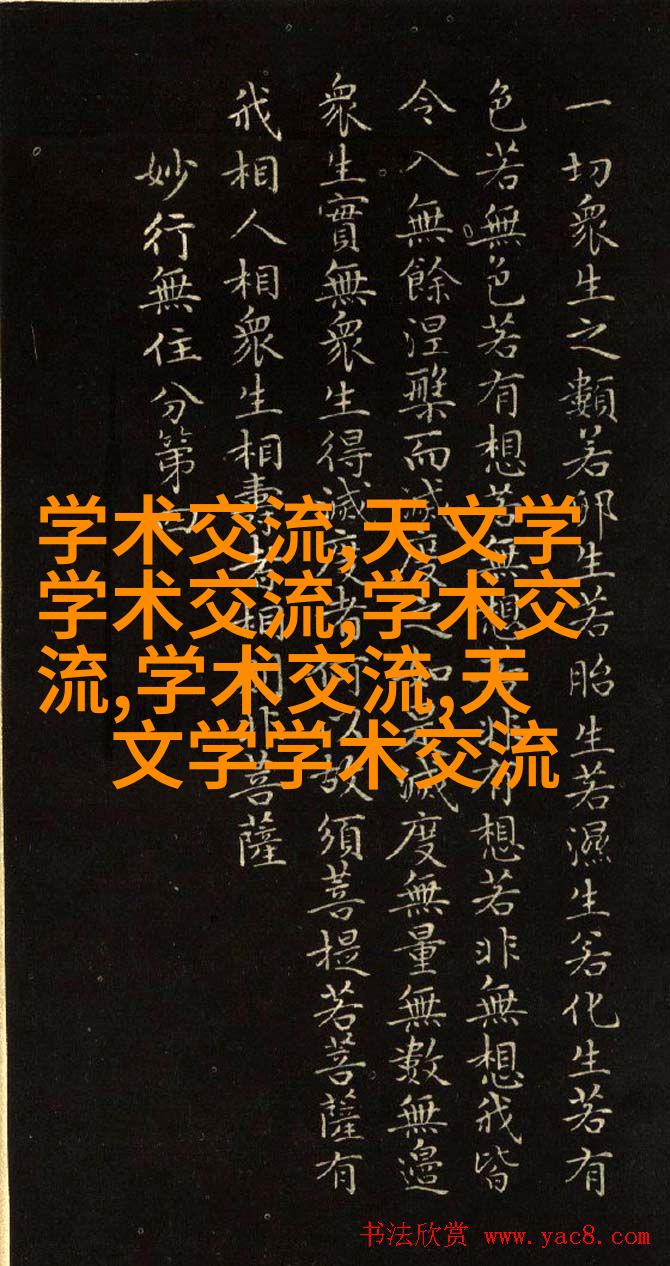 一切衆生之類若卵生若胎生若濕生若化生若有
色若無色若有想若無想若非有想若非無想我皆
令入無餘涅槃而滅度之如是滅度無量無數無邊
衆生實無衆生得滅度者何以故須菩提若菩薩有
我相人相衆生相壽者相即非菩薩
妙行無住分第四
学术交流,天文学
学术交流,学术交
流,学术交流,天
文学学术交流
书法欣赏 www.yac8.com